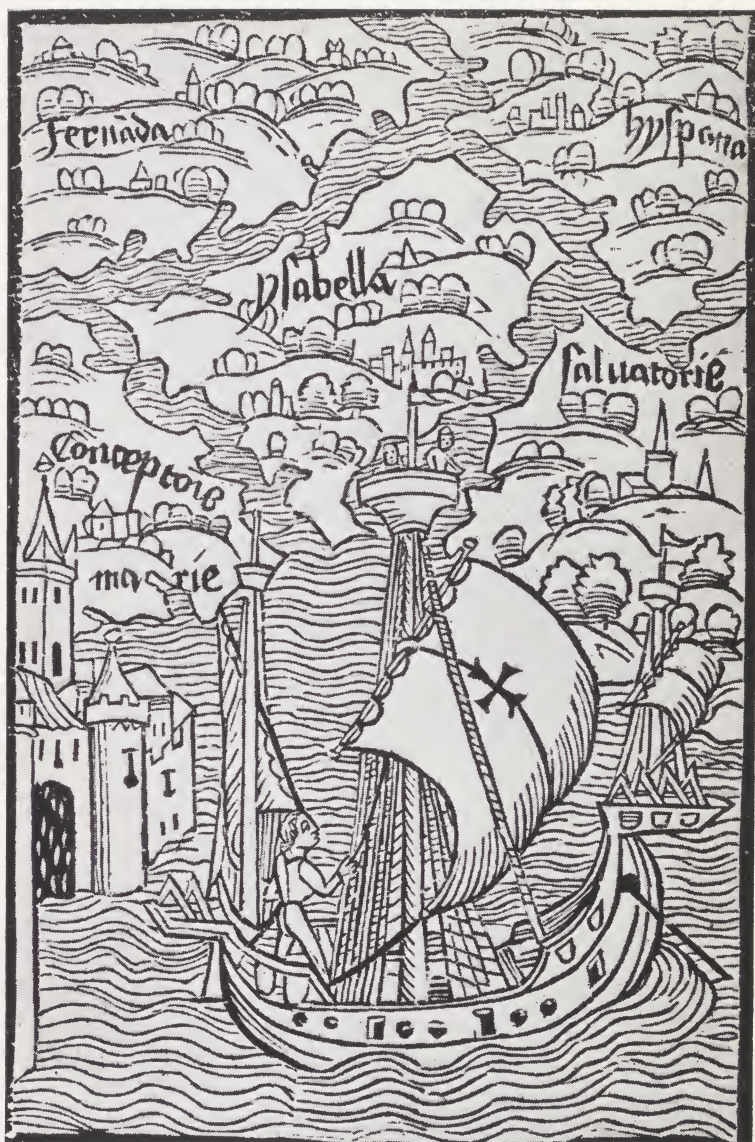 Fernāda
hyspana
ysabella
saluatorie
Conceptois
marie